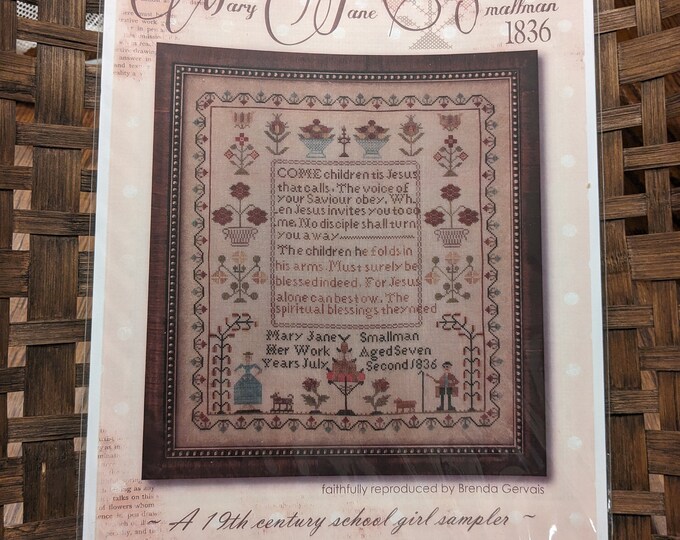 Mary Jane Smallman
1836
COME children tis Jesus
that calls. The voice of
your Saviour obey. Wh
en Jesus invites you to co
me. No disciple shall turn
you away
The children he folds in
his arms. Must surely be
blessed indeed. For Jesus
alone can bestow. The
spiritual blessings they need
Mary Jane Smallman
Her Work Aged Seven
Years July Second 1836
faithfully reproduced by Brenda Gervais
~ A 19th century school girl sampler ~